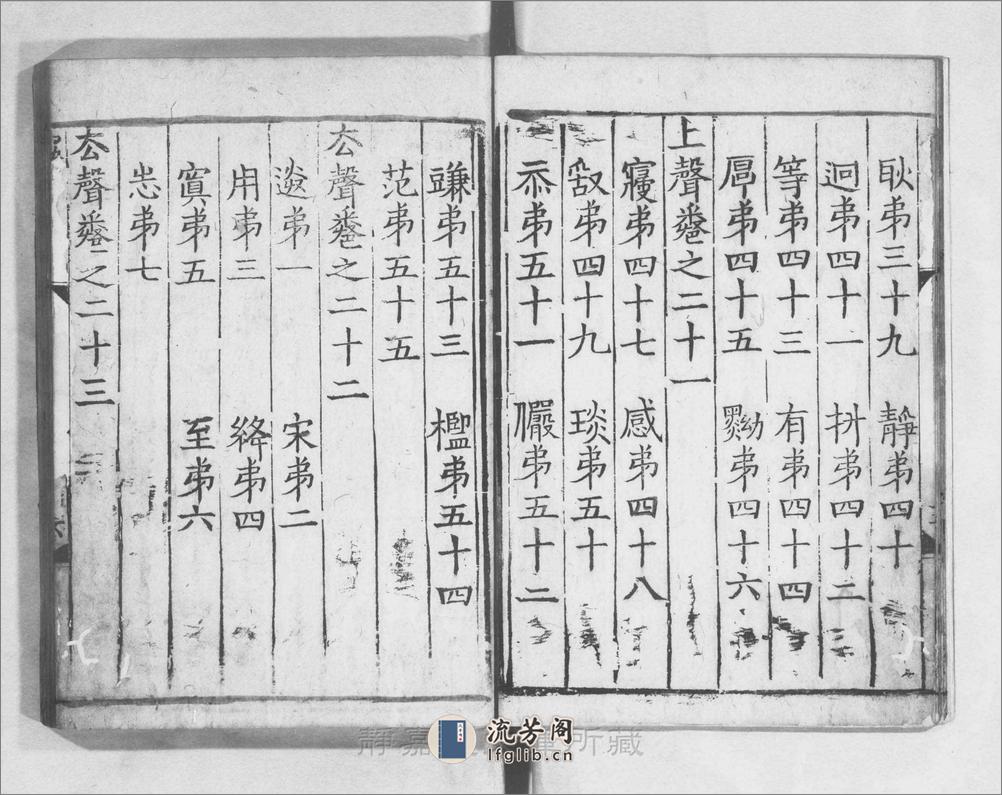 耿弟三十九 靜弟四十
迥弟四十一 抍弟四十二
等弟四十三 有弟四十四
厚弟四十五 黝弟四十六
上聲卷之二十一
寑弟四十七 感弟四十八
敢弟四十九 琰弟五十
忝弟五十一 儼弟五十二
豏弟五十三 檻弟五十四
范弟五十五
去聲卷之二十二
送弟一 宋弟二
用弟三 絳弟四
寘弟五 至弟六
志弟七
去聲卷之二十三
流芳阁
lfglib.cn